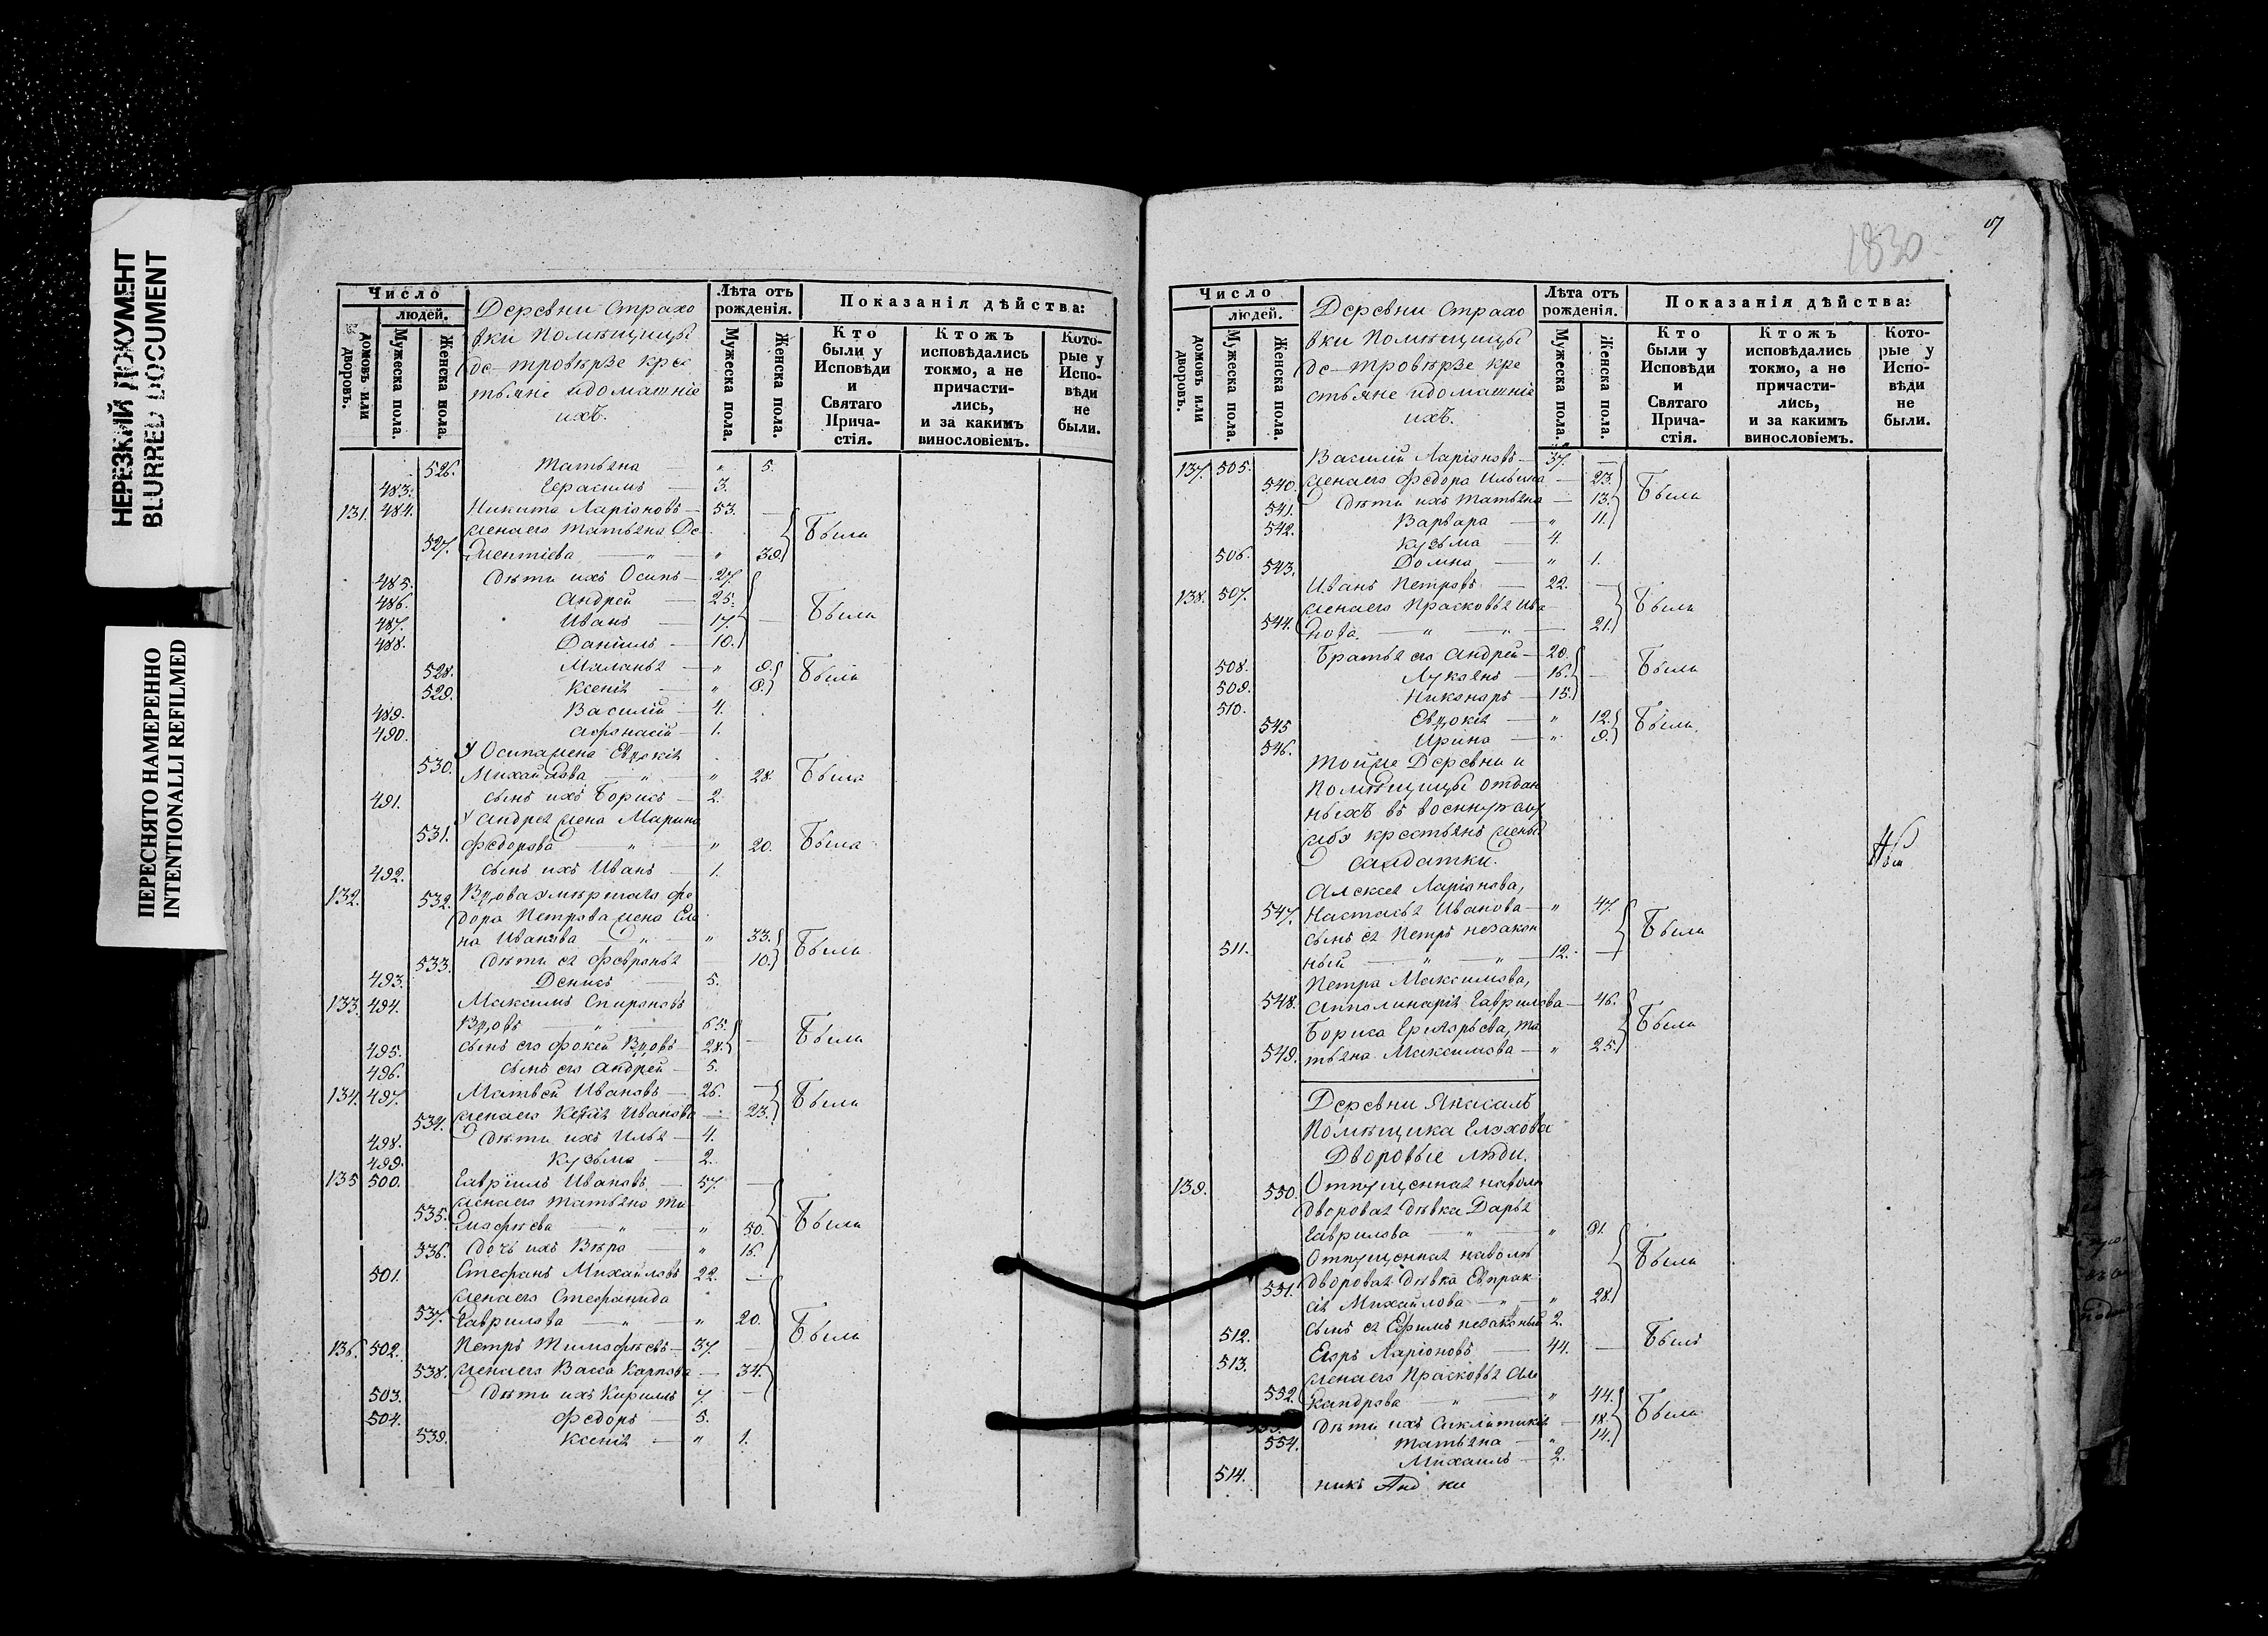 НЕРЕЗКИЙ ДОКУМЕНТ
BLURRED DOCUMENT
ПЕРЕСНЯТО НАМЕРЕННО
INTENTIONALLI REFILMED
Число
людей.
домовъ или дворовъ.
Мужеска пола.
Женска пола.
Деревни Страхо
вки Помѣщицы
де-тровѣрзе кре
стьяне идомашніе
ихъ.
Лѣта отъ рожденія.
Мужеска пола.
Женска пола.
Показанія дѣйства:
Кто были у Исповѣди и Святаго Причастія.
Ктожъ исповѣдались токмо, а не причастились, и за какимъ винословіемъ.
Которые у Исповѣди не были.
526. Татьяна " 5.
483. Герасимъ 3.
131. 484. Никита Ларіоновъ 53.
женаего Татьяна Де
527. ментіева " 39. Были
485. дѣти ихъ Осипъ 27.
486. Андрей 25. Были
487. Иванъ 17.
488. Даніилъ 10.
528. Маланья " 9. Были
529. Ксенія " 8.
489. Василій 4.
490. Афонасій 1.
У Осипа жена Евдокія
530. Михайлова " 28. Была
491. сынъ ихъ Борисъ 2.
У Андрея жена Марина
531. Федорова " 20. Была
492. сынъ ихъ Иванъ 1.
132. 532. Вдова умершаго Фе
дора Петрова жена Еле
на Иванова " 33. Были
533. дѣти ея Февронья 10.
493. Денисъ 5.
133. 494. Максимъ Спироновъ
Вдовъ 65.
495. сынъ его Фокей Вдовъ 28. Были
496. сынъ его Андрей 5.
134. 497. Матвей Ивановъ 26. Были
534. женаего Ксенія Иванова 23.
498. дѣти ихъ Илья 4.
499. Кузьма 2.
135 500. Гавріилъ Ивановъ 57.
женаего Татьяна Ти
535. мофѣева " 50. Были
536. дочь ихъ Вѣра " 16.
501. Стефанъ Михайловъ 22.
женаего Стефанида
537. Гаврилова " 20. Были
136. 502. Петръ Тимофѣевъ 37.
538. женаего Васса Карпова 34.
503. дѣти ихъ Кирилъ 7.
504. Федоръ 5.
539. Ксенія " 1.
1830.
Число
людей.
домовъ или дворовъ.
Мужеска пола.
Женска пола.
Деревни Страхо
вки Помѣщицы
де-тровѣрзе кре
стьяне идомашніе
ихъ.
Лѣта отъ рожденія.
Мужеска пола.
Женска пола.
Показанія дѣйства:
Кто были у Исповѣди и Святаго Причастія.
Ктожъ исповѣдались токмо, а не причастились, и за какимъ винословіемъ.
Которые у Исповѣди не были.
137. 505. Василій Ларіоновъ 37.
540. женаего Федора Ильина 23. Были
541. дѣти ихъ Татьяна 13.
542. Варвара " 11.
506. Кузьма 4.
543. Домна " 1.
138. 507. Иванъ Петровъ 22.
женаего Прасковья Ива Были
544. нова " " 21.
508. Братья его Андрей 20.
509. Лукьянъ 16. Были
510. Никаноръ 15.
545 Евдокія " 12. Были.
546. Ирина " 9.
Тойже Деревни и
Помѣщицы отдан
ныхъ въ военную слу
жбу крестьянъ жены
салдатки.
Алексея Ларіонова,
547. Настасья Иванова " 47. Были
сынъ ея Петръ незакон
511. ный " " 12.
Петра Максимова,
548. Апполинарія Гаврилова 46. Были
Бориса Григорьева, Та
549. тьяна Максимова " 25.
Деревни
Помѣщика Елахова
Дворовые люди.
139. 550. Отпущенная наволю
дворовая дѣвка Дарья
Гаврилова " " 81.
Отпущенная наволю Были
551. дворовая дѣвка Евпрак
сія Михайлова " " 28.
512. сынъ ея Ефимъ незаконый 2.
513. Егоръ Ларіоновъ 44. Былъ
женаего Прасковья Але
552. ксандрова " " 44. Были
553. дѣти ихъ Сиклитикія 18.
554. Татьяна " 14.
514. Михаилъ 2.
никъ Анд ки